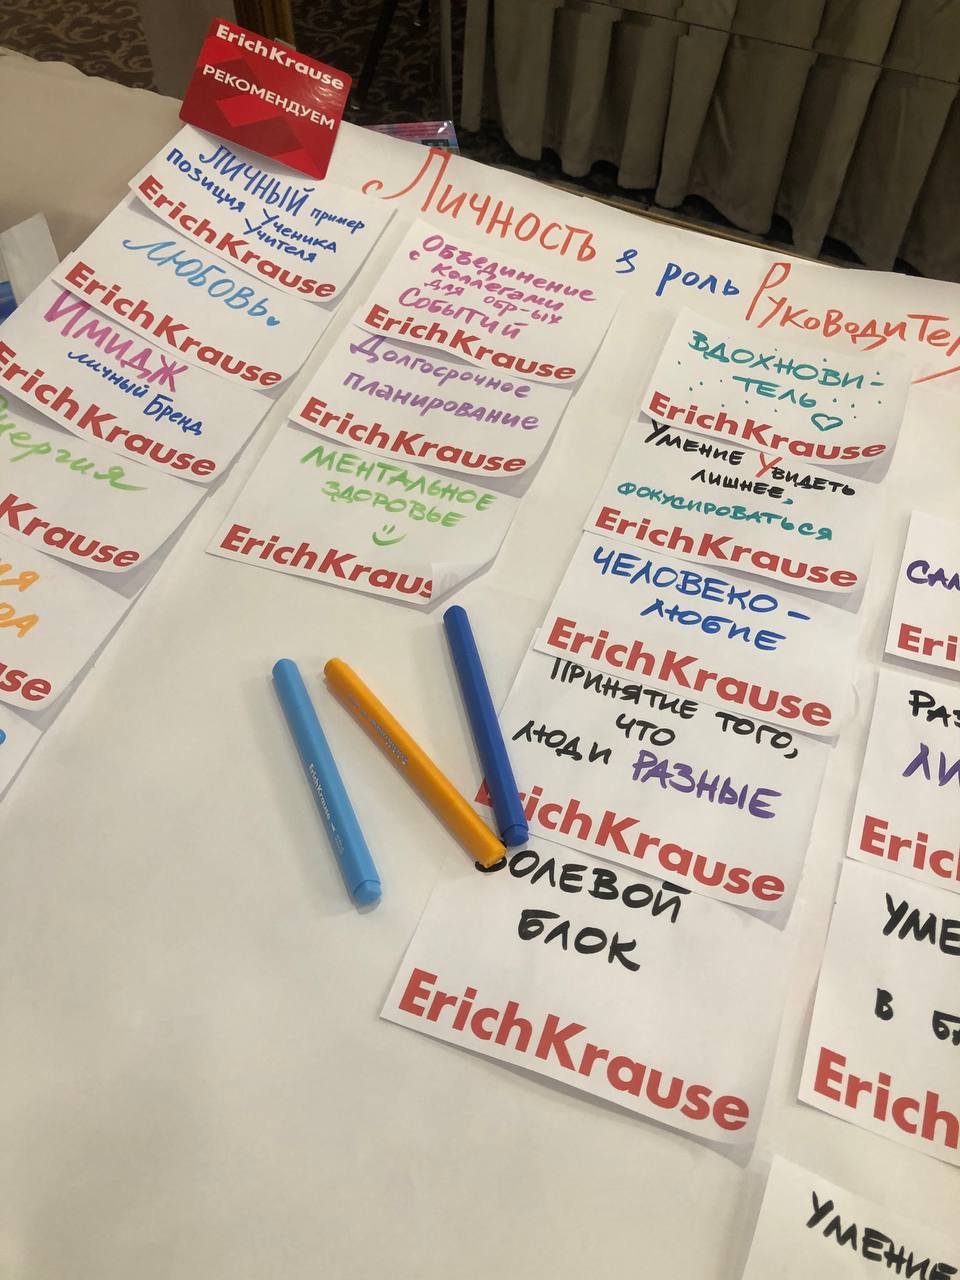 ErichKrause
РЕКОМЕНДУЕМ
Личность в роль Руководител
ЛИЧНЫЙ пример
позиция Ученика
Учителя
ErichKrause
ЛЮБОВЬ
ErichKrause
ИМИДЖ
личный Бренд
ErichKrause
нергия
Krause
ия
ра
use
Объединение
с коллегами
для обр-ых
Событий
ErichKrause
Долгосрочное
планирование
ErichKrause
МЕНТАЛЬНОЕ
ЗДОРОВЬЕ
ErichKraus
ВДОХНОВИ-
ТЕЛЬ
ErichKrause
Умение Увидеть
лишнее,
фокусироваться
ErichKrause
ЧЕЛОВЕКО-
ЛЮБИЕ
ErichKrause
ПРИНЯТИЕ ТОГО,
ЧТО
ЛЮДИ РАЗНЫЕ
ErichKrause
ВОЛЕВОЙ
БЛОК
ErichKrause
САМ
Eri
РАЗ
ЛИ
Eric
УМЕ
В БА
Erich
УМЕНИЕ
ErichKrause